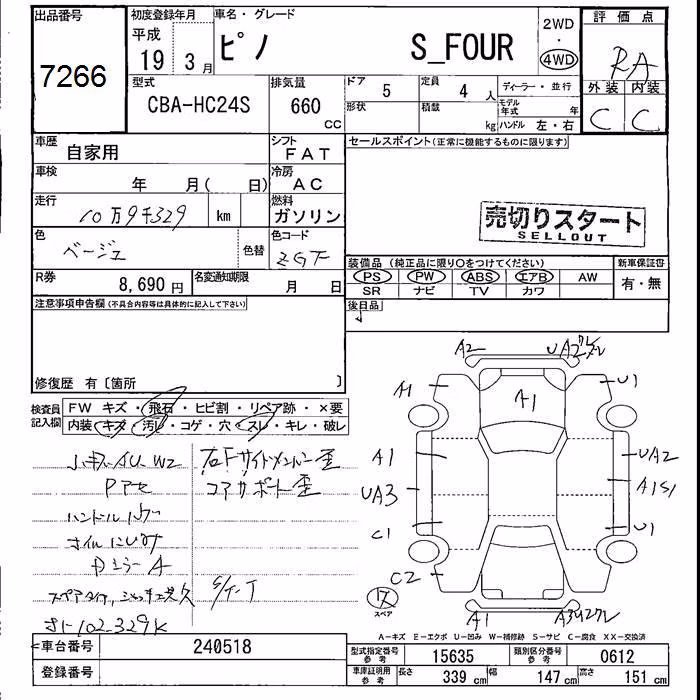 出品番号 初度登録年月 車名・グレード 2WD 評価点
7266 平成 19 3月 ピノ S_FOUR ・ 4WD RA
型式 排気量 ドア 5 定員 4人 ディーラー・並行 外装 内装
CBA-HC24S 660 CC 形状 積載 kg モデル年式 年 ハンドル 左・右 C C
車歴 自家用 シフト FAT セールスポイント(正常に機能するものに限ります)
車検 年 月( 日) 冷房 AC
走行 10万9千329 km 燃料 ガソリン 売切りスタート
SELLOUT
色 ベージュ 色替 色コード ZGF
装備品(純正品に限り〇をつけてください) 新車保証書
R券 8,690円 名変通知期限 月 日 PS PW ABS エアB AW 有・無
SR ナビ TV カワ
注意事項申告欄(不具合内容等は具体的に記入して下さい) 後日品
修復歴 有〔箇所 〕
検査員記入欄 FW キズ・飛石・ヒビ割・リペア跡・×要
内装・キズ・汚レ・コゲ・穴・スレ・キレ・破レ
A2 UA2
A1 A1 U1
A1 UA2
UA3 A1S1
C1 U1
C2
スペア
A1
AU W2 右Fサイドメンバー歪
コアサポート歪
ハンドル
A
スペアタイヤ,
102.329K
A―キズ E―エクボ U―凹み W―補修跡 S―サビ C―腐食 XX―交換済
車台番号 240518 型式指定番号 参考 15635 類別区分番号 参考 0612
登録番号 車庫証明用 参考 長さ 339 cm 幅 147 cm 高さ 151 cm